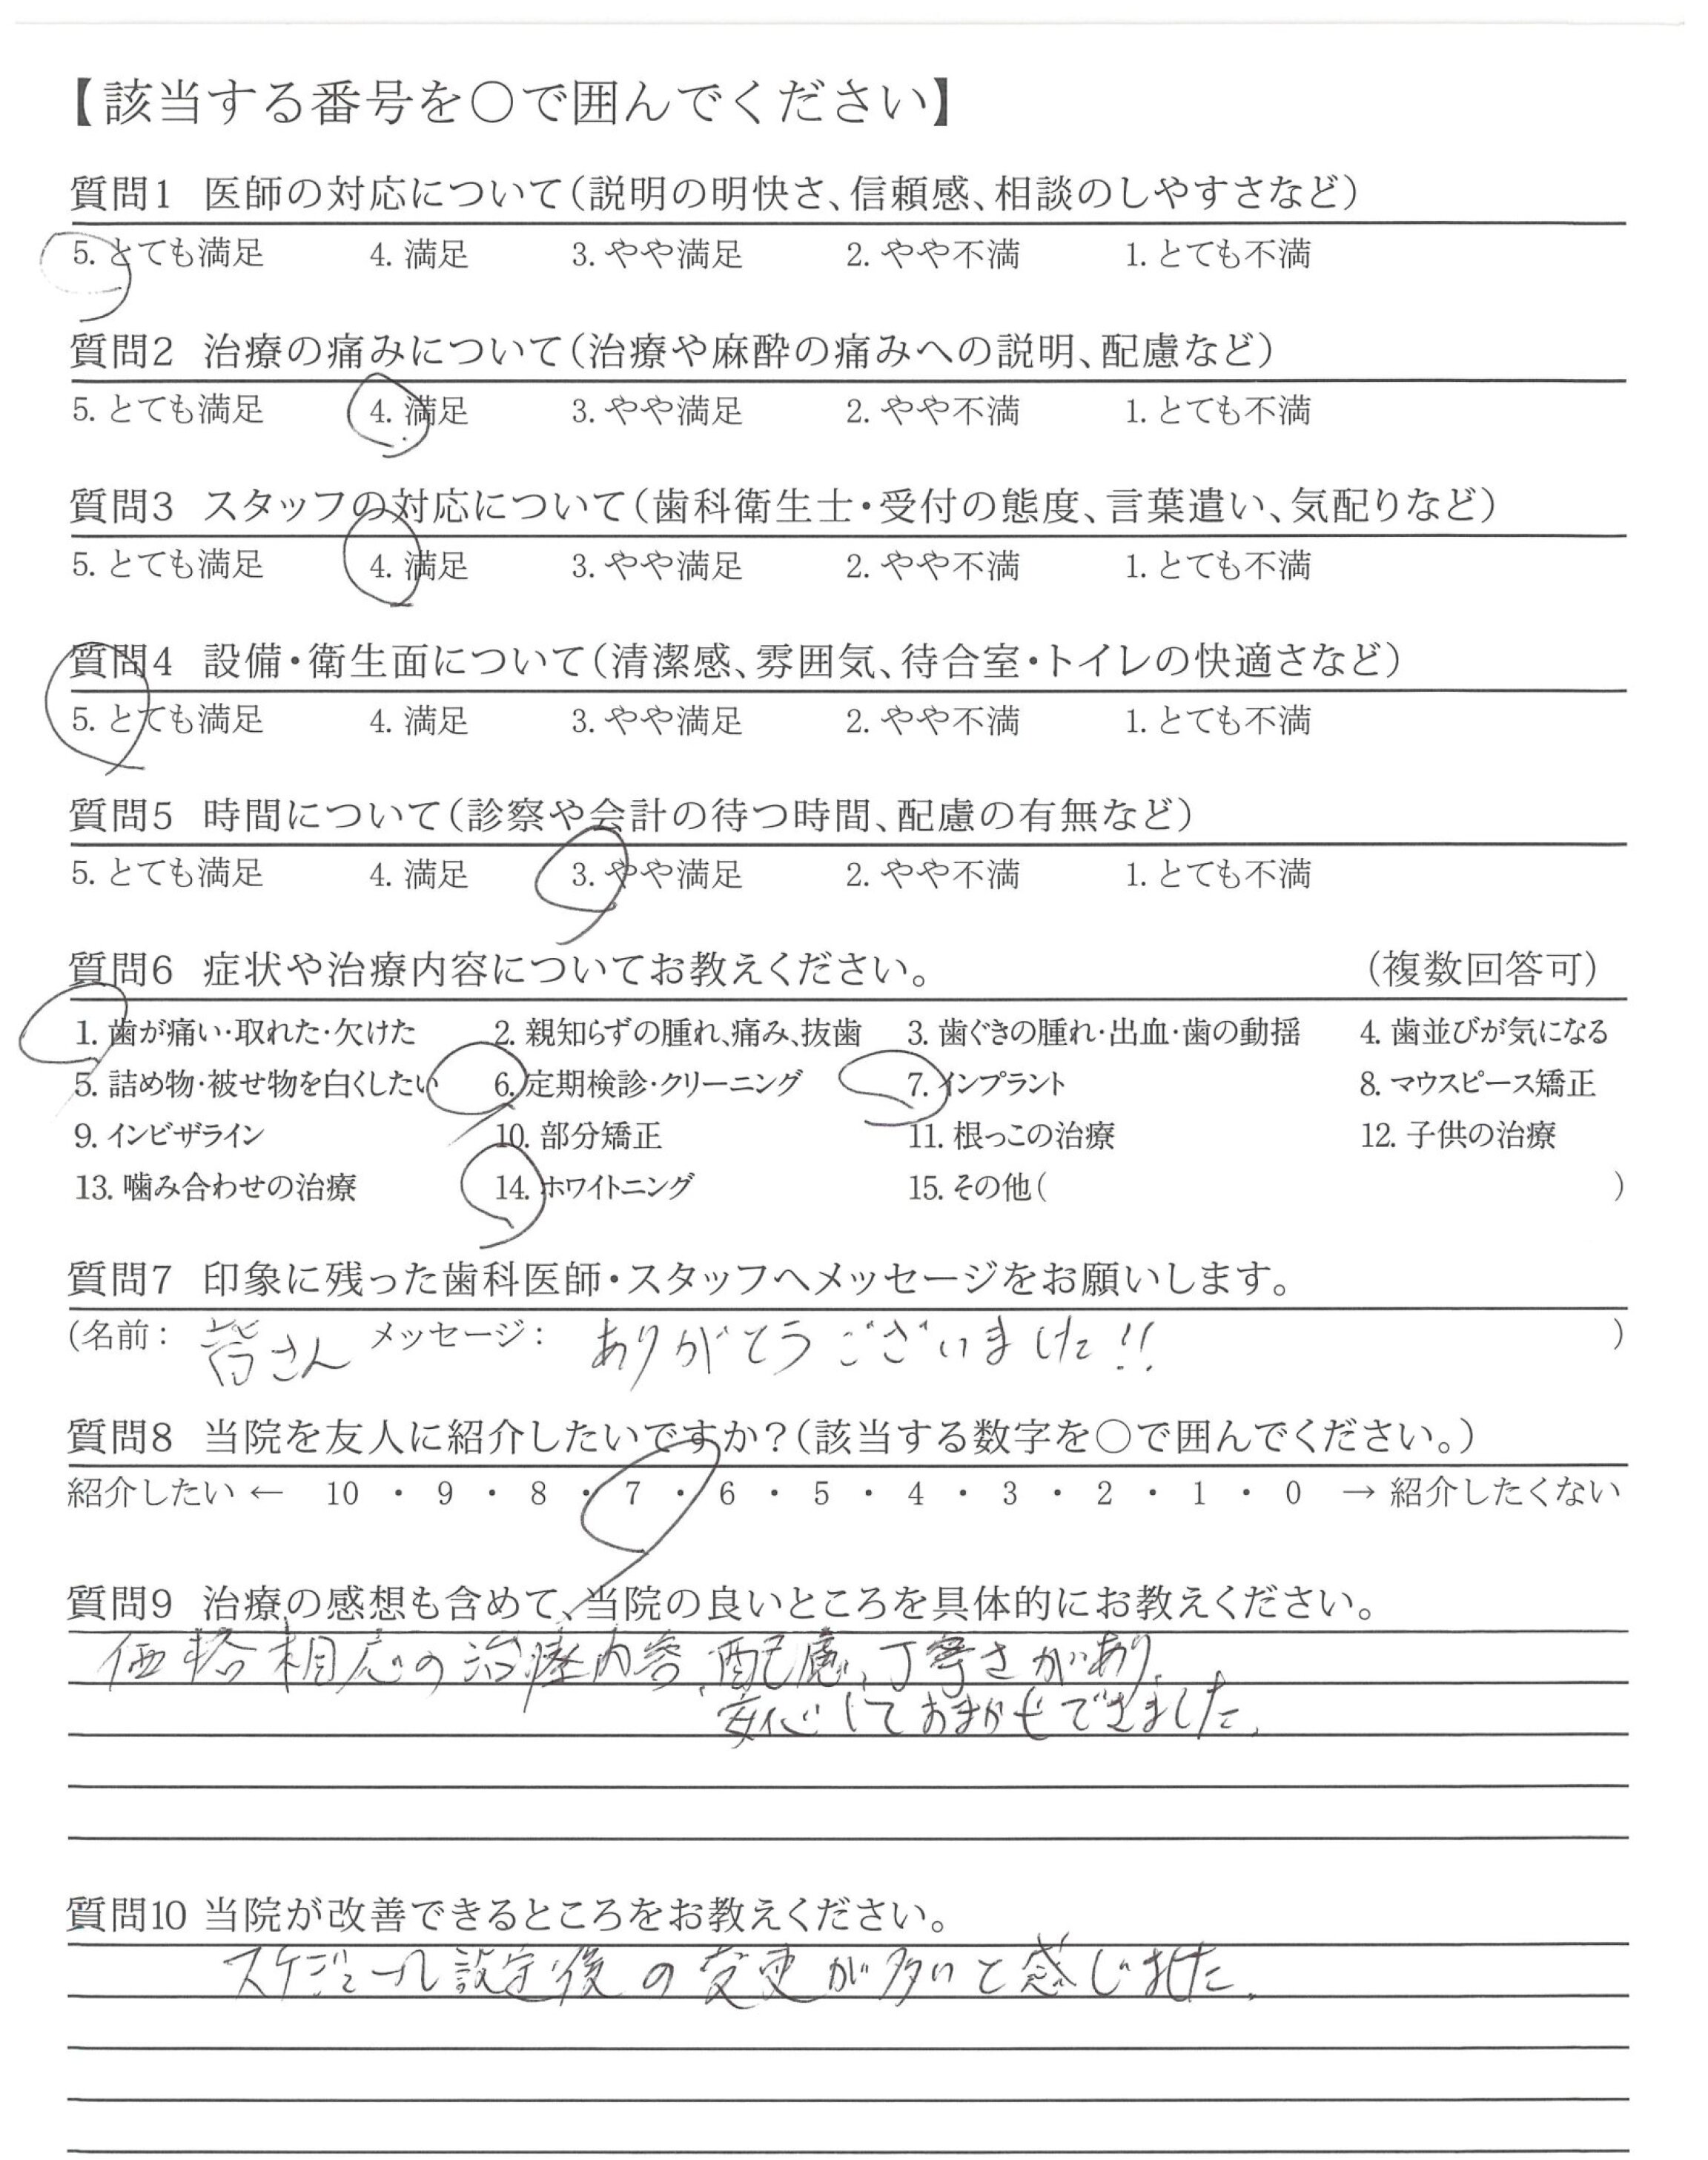 【該当する番号を〇で囲んでください】
質問1 医師の対応について(説明の明快さ、信頼感、相談のしやすさなど)
5. とても満足 4. 満足 3. やや満足 2. やや不満 1. とても不満
質問2 治療の痛みについて(治療や麻酔の痛みへの説明、配慮など)
5. とても満足 4. 満足 3. やや満足 2. やや不満 1. とても不満
質問3 スタッフの対応について(歯科衛生士・受付の態度、言葉遣い、気配りなど)
5. とても満足 4. 満足 3. やや満足 2. やや不満 1. とても不満
質問4 設備・衛生面について(清潔感、雰囲気、待合室・トイレの快適さなど)
5. とても満足 4. 満足 3. やや満足 2. やや不満 1. とても不満
質問5 時間について(診察や会計の待つ時間、配慮の有無など)
5. とても満足 4. 満足 3. やや満足 2. やや不満 1. とても不満
質問6 症状や治療内容についてお教えください。 (複数回答可)
1. 歯が痛い・取れた・欠けた 2. 親知らずの腫れ、痛み、抜歯 3. 歯ぐきの腫れ・出血・歯の動揺 4. 歯並びが気になる
5. 詰め物・被せ物を白くしたい 6. 定期検診・クリーニング 7. インプラント 8. マウスピース矯正
9. インビザライン 10. 部分矯正 11. 根っこの治療 12. 子供の治療
13. 噛み合わせの治療 14. ホワイトニング 15. その他( )
質問7 印象に残った歯科医師・スタッフへメッセージをお願いします。
(名前： 皆さん メッセージ： ありがとうございました!! )
質問8 当院を友人に紹介したいですか？(該当する数字を〇で囲んでください。)
紹介したい ← 10 ・ 9 ・ 8 ・ 7 ・ 6 ・ 5 ・ 4 ・ 3 ・ 2 ・ 1 ・ 0 → 紹介したくない
質問9 治療の感想も含めて、当院の良いところを具体的にお教えください。
価格相応の治療内容、配慮、丁寧さがあり、
安心しておまかせできました。
質問10 当院が改善できるところをお教えください。
スケジュール設定後の変更が多いと感じました。